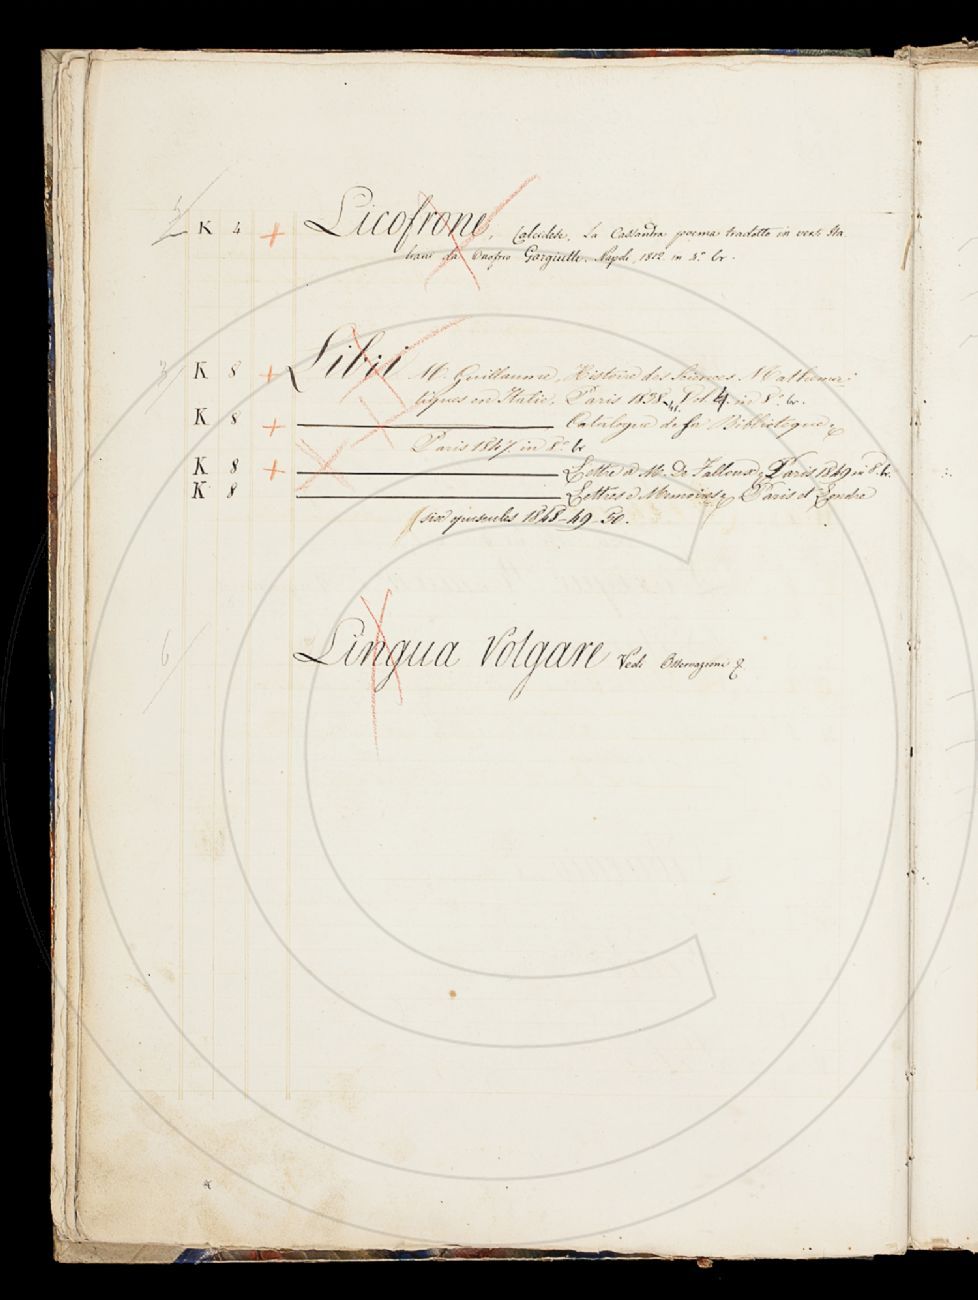 K 4 + Licofrone, Calcidese, La Cassandra poema tradotto in versi Ita
liani da Onofrio Gargiulli. Napoli, 1812 in 4.° br.
K 8 + Libri M. Guillaume, Histoire des Sciences Mathema-
tiques en Italie, Paris 1838-41, Vol 4. in 8.° br.
K 8 + Catalogue de sa Biblioteque,
Paris 1847. in 8.° br
K 8 + Lettre a Mr. De Falloux, Paris 1849 in 8.° br.
K 8 Lettres e Memoires, Paris et Londre
six opuscules 1848-49-50.
Lingua Volgare Vedi Osservazioni &